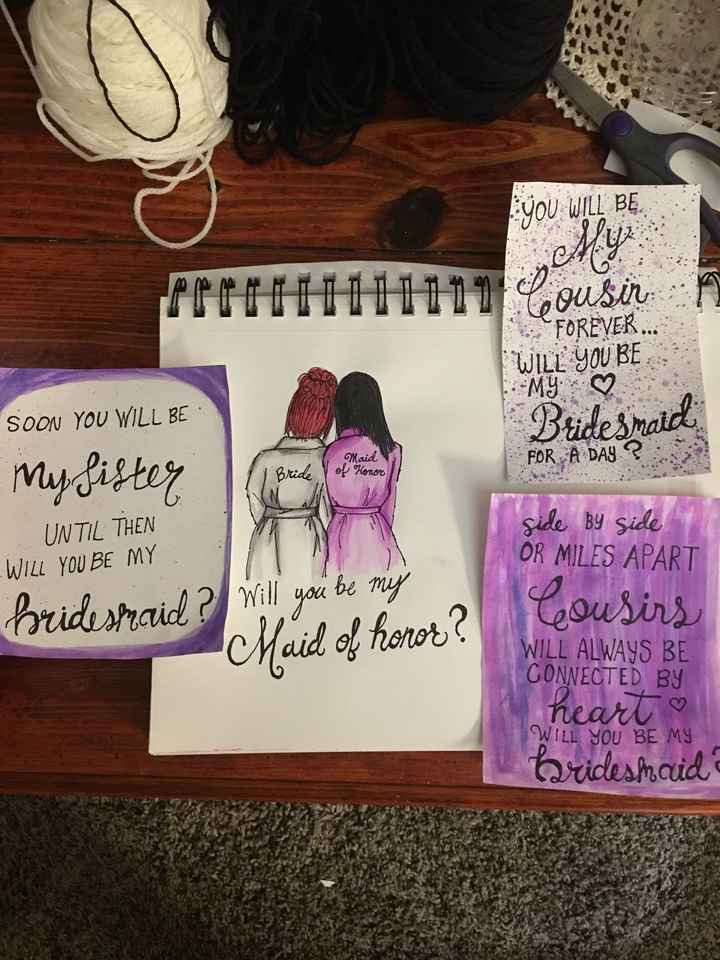 SOON YOU WILL BE
My Sister
UNTIL THEN
WILL YOU BE MY
bridesmaid?
Bride
Maid
of Honor
Will you be my
Maid of honor?
YOU WILL BE
My
Cousin
FOREVER...
WILL YOU BE
MY ♡
Bridesmaid
FOR A DAY?
side BY side
OR MILES APART
Cousins
WILL ALWAYS BE
CONNECTED BY
heart ♡
WILL YOU BE MY
bridesmaid?